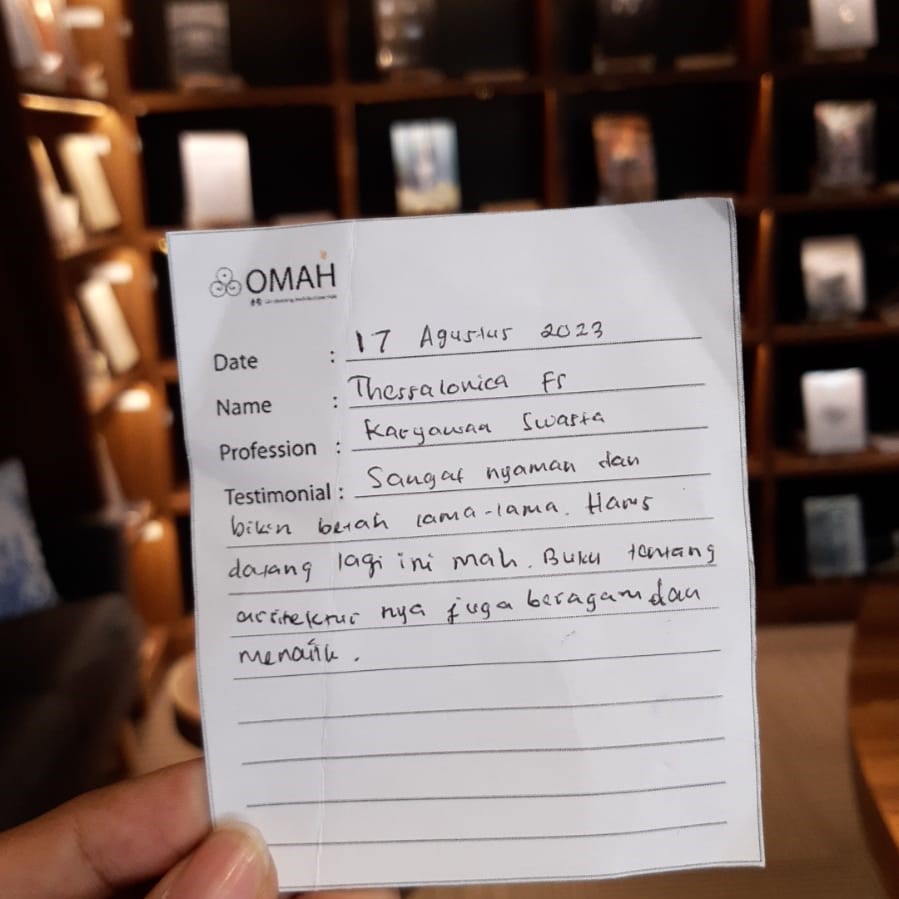 OMAH
Date : 17 Agustus 2023
Name : Thessalonica Fr
Profession : Karyawan Swasta
Testimonial : Sangat nyaman dan
bikin betah lama-lama. Harus
datang lagi ini mah. Buku tentang
arsitektur nya juga beragam dan
menarik.